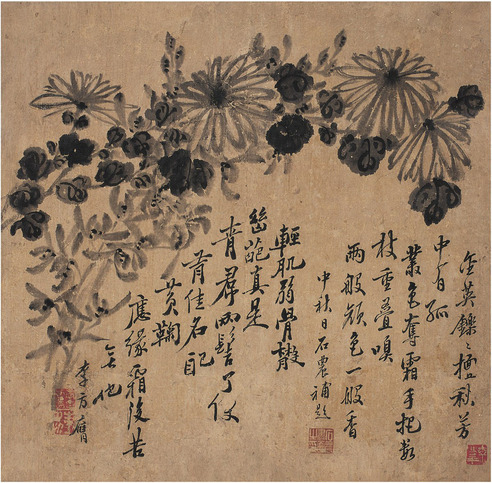 金英鑠〻擅秋芳
中有孤
叢色奪霜手把數
枝重疊嗅
兩般顏色一般香
中秋日石農補題
輕肌弱骨散
幽葩真是
青裙兩髻丫便
有佳名配
黃鞠
應緣霜後苦
無他
李方膺